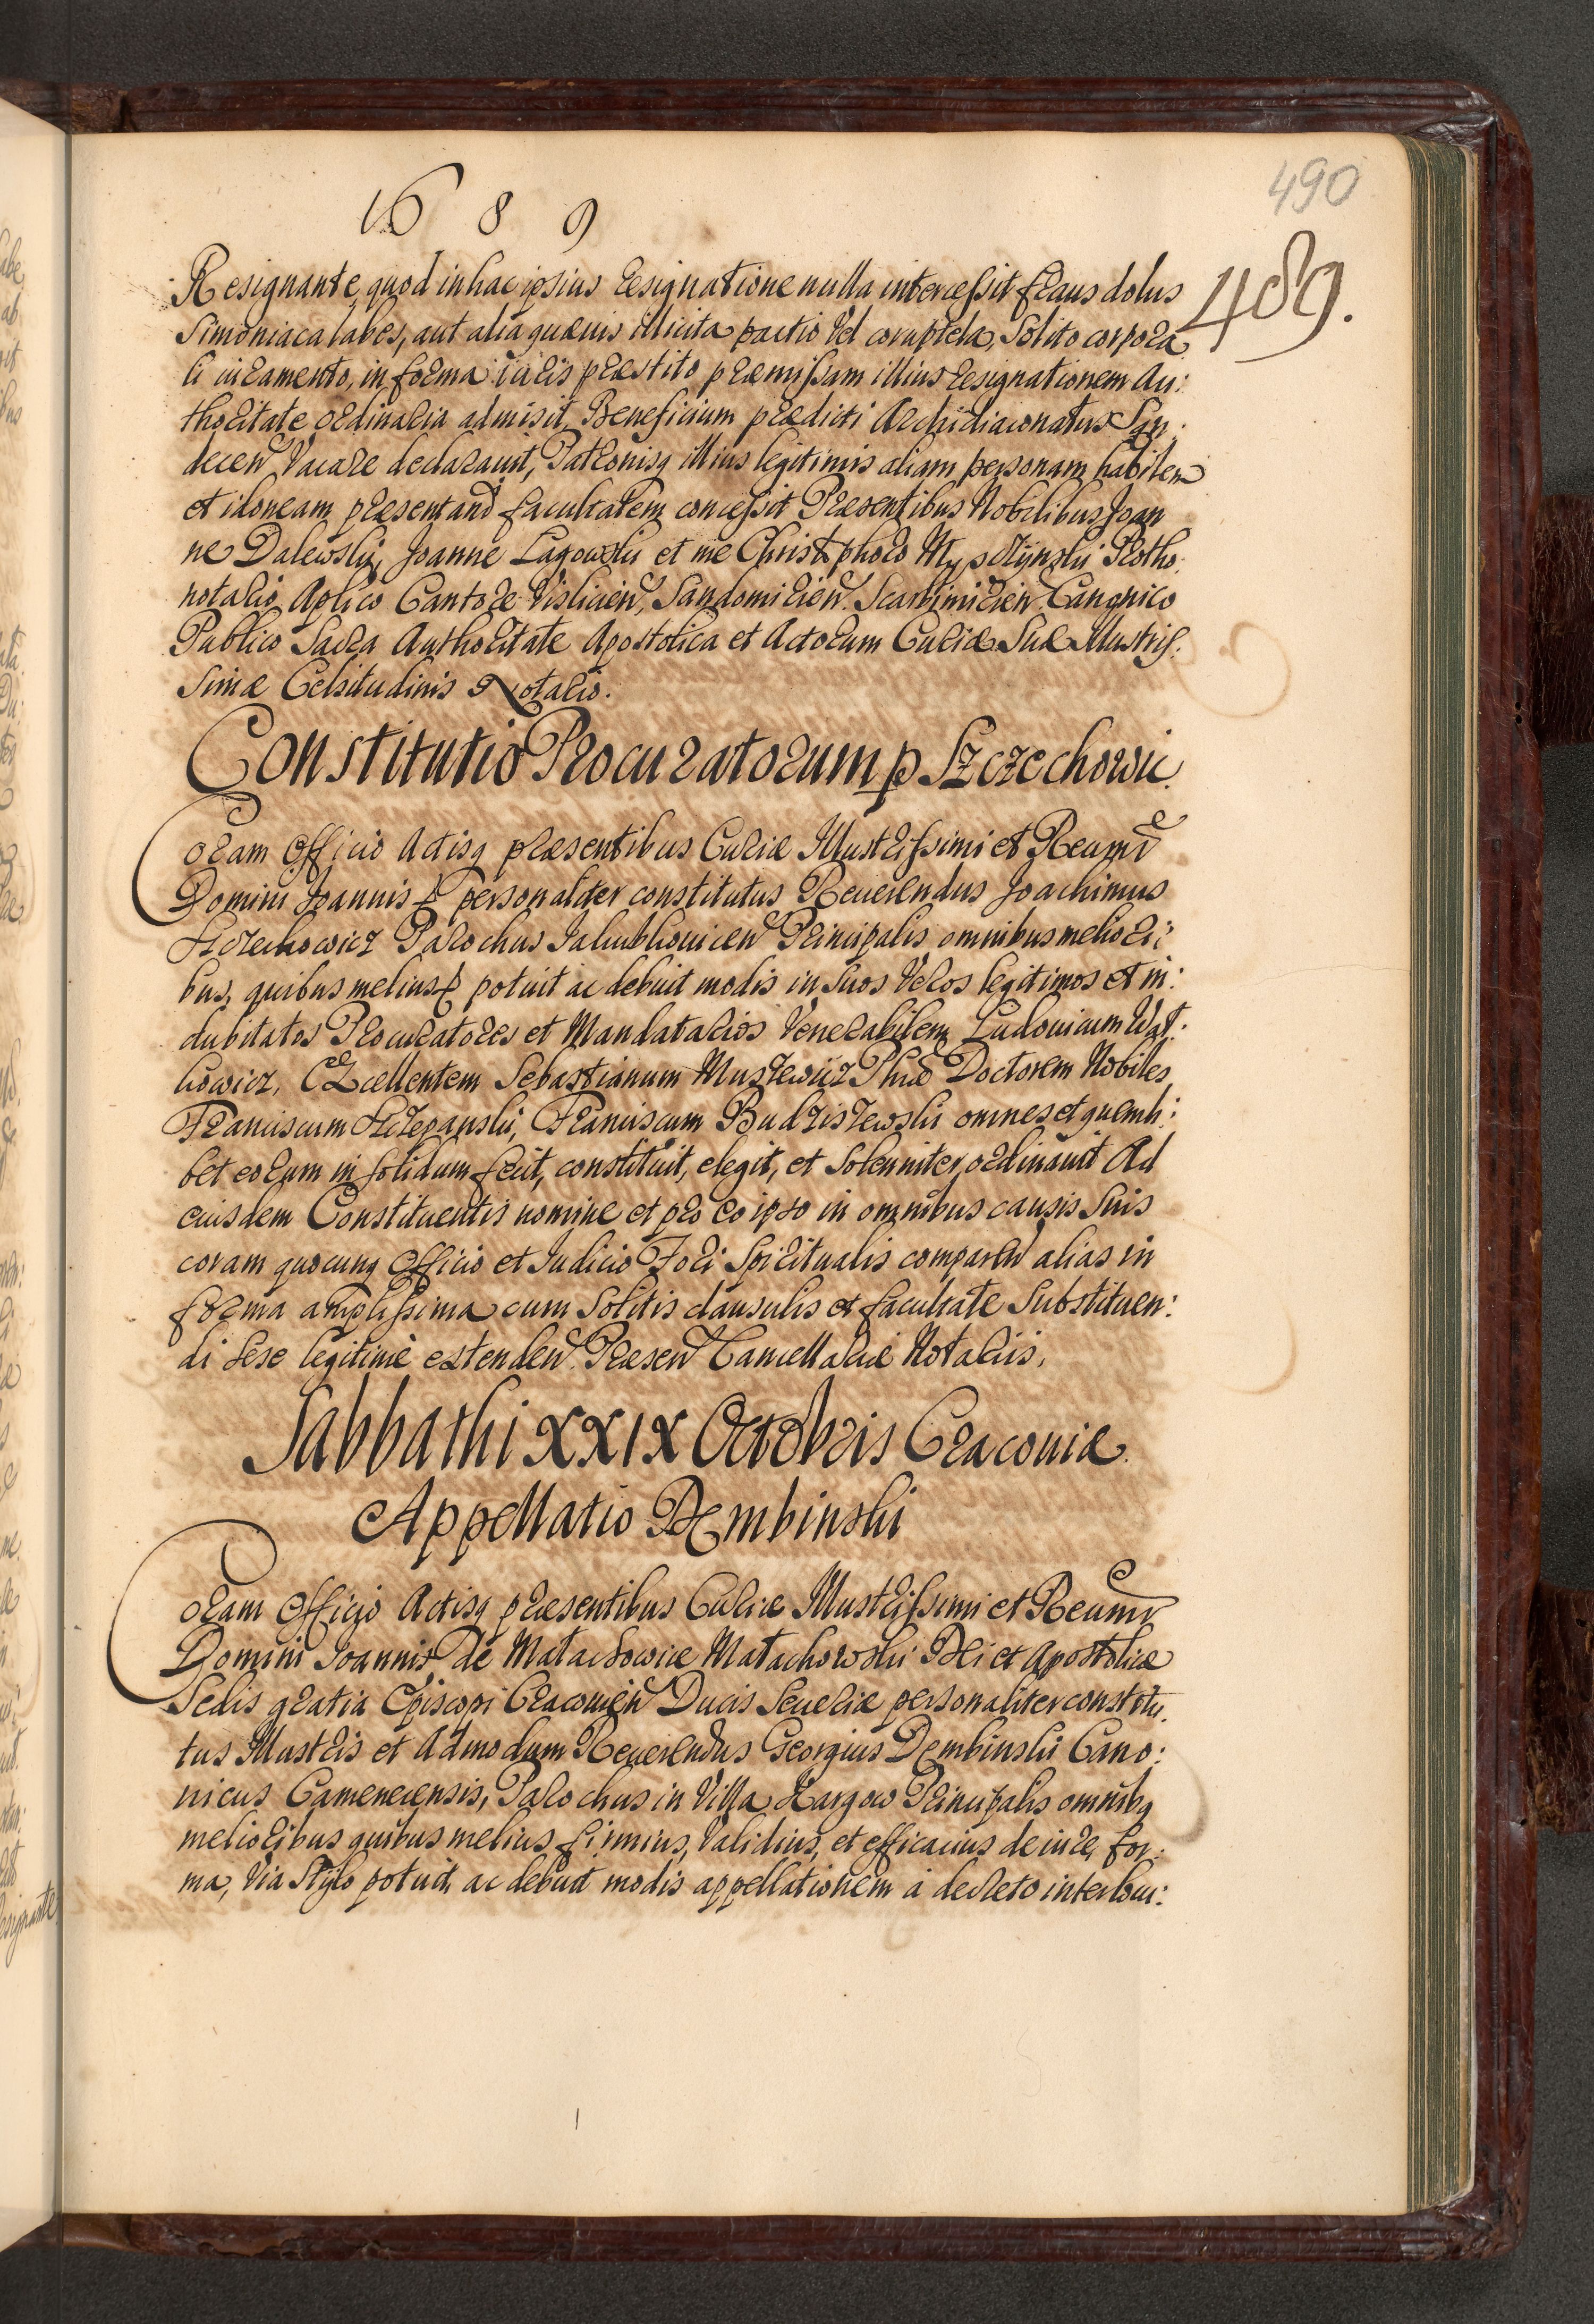 490
1689
489.
Resignante, quod in hac ipsius resignatione nulla intercessit fraus dolus
Simoniaca labes, aut alia quævis illicita pactio vel coruptela, Solito corpora
li iuramento, in forma iuris præstito præmissam illius resignationem Au:
thoritate ordinaria admisit, Beneficium prædicti Archidiaconatus San:
decen Vacare declarauit, Patronisq illius legitimis aliam personam habilem
et idoneam præsentand facultatem concessit Præsentibus Nobilibus Joan
ne Dalewski, Joanne Lagowski et me Christophoro Protho:
notario Aplico Cantore Vislicien, Sandomirien. Scarbimirien Canonico
Publico Sacra Authoritate Apostolica et Actorum Curiæ Suæ Illustris:
simæ Celsitudinis Notario.
Constitutio Procuratorum p Szczechowic.
Coram Officio Actisq præsentibus Curiæ Illustrissimi et Reamd
Domini Joannis personaliter constitutus Reuerendus Joachimus
Szczechowicz Parochus Principalis omnibus meliori:
bus, quibus melius potuit ac debuit modis in Suos Veros legitimos et in:
dubitatos Procuratores et Mandatarios Venerabilem Ludouicum Wat:
kowicz, Excellentem Sebastianum Muszewicz Phiæ Doctorem Nobiles
Franciscum Szczepanski, Franciscum Budziszewski omnes et quemli:
bet eorum in solidum fecit, constituit, elegit, et Solenniter ordinauit Ad
eiusdem Constituentis nomine et pro eo ipso in omnibus causis Suis
coram quocunq Officio et Iudicio Fori Spiritualis comparen alias in
forma amplissima cum Solitis clausulis et facultate Substituen:
di sese legitimè extenden. Præsen Cancellariæ Notariis.
Sabbathi XXIX Octobris Cracouiæ.
Appellatio Dembinski
Coram Officio Actisq præsentibus Curiæ Illustrissimi et Reamd
Domini Ioannis de Małachowice Małachowski Dei et Apostolicæ
Sedis gratia Episcopi Cracouien Ducis Seueriæ personaliter constitu.
tus Illustris et Admodum Reuerendus Georgius Dembinski Cano:
nicus Camenecensis, Parochus in Villa Kargow Principalis omnibq
melioribus quibus melius, firmius, validius, et efficacius de iure, for:
ma, via Stylo potuit, ac debuit modis appellationem à decreto interlocu: